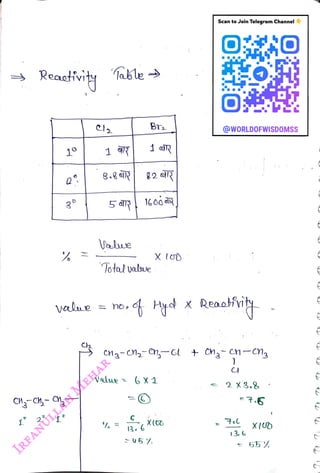 Scan to Join Telegram Channel 👇
@WORLDOFWISDOMSS
⇒ Reactivity Table →
Cl₂ Br₂
1° 1 बार 1 बार
2° 3.8 बार 82 बार
3° 5 बार 1600 बार
% = Value / Total value X 100
value = no. of Hyd X Reactivity
Cl₂
CH₃-CH₂-CH₂-Cl + CH₃-CH-CH₃
Cl
CH₃-CH₂-CH₃
1° 2° 1°
Value = 6 X 1 = 2 X 3.8
= 6 = 7.6
% = 6/13.6 X 100 = 7.6/13.6 X 100
= 45 % = 55 %
IRFANULLAH MEHAR